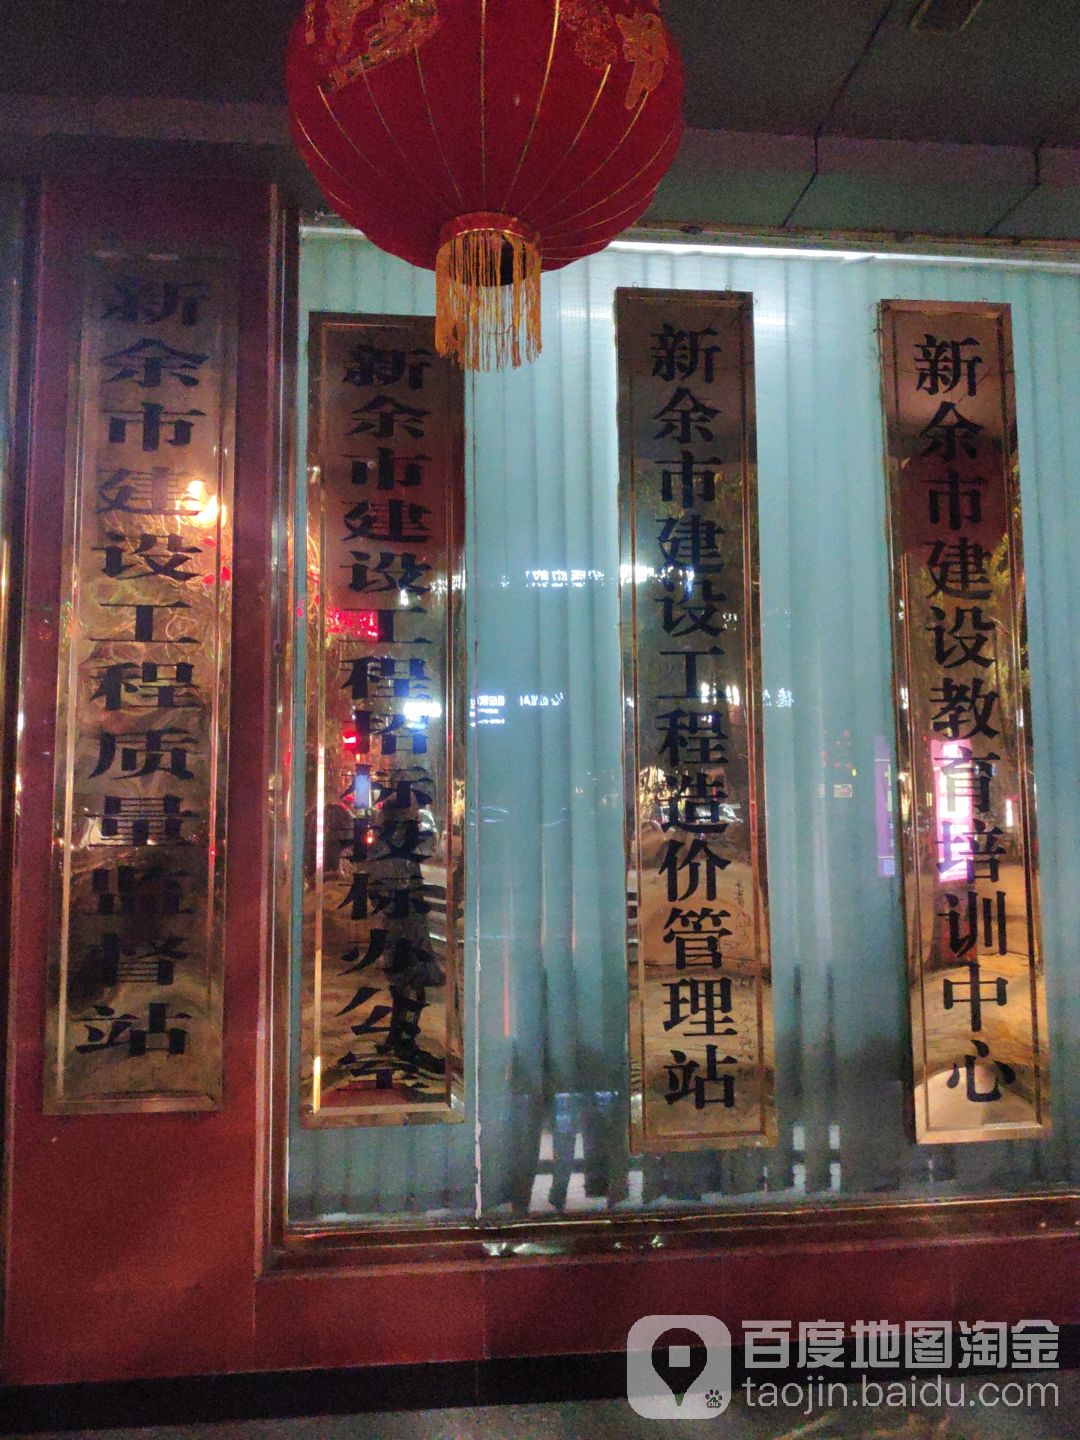 新余市建设工程质量监督站
新余市建设工程招标投标办公室
新余市建设工程造价管理站
新余市建设教育培训中心
百度地图淘金
taojin.baidu.com